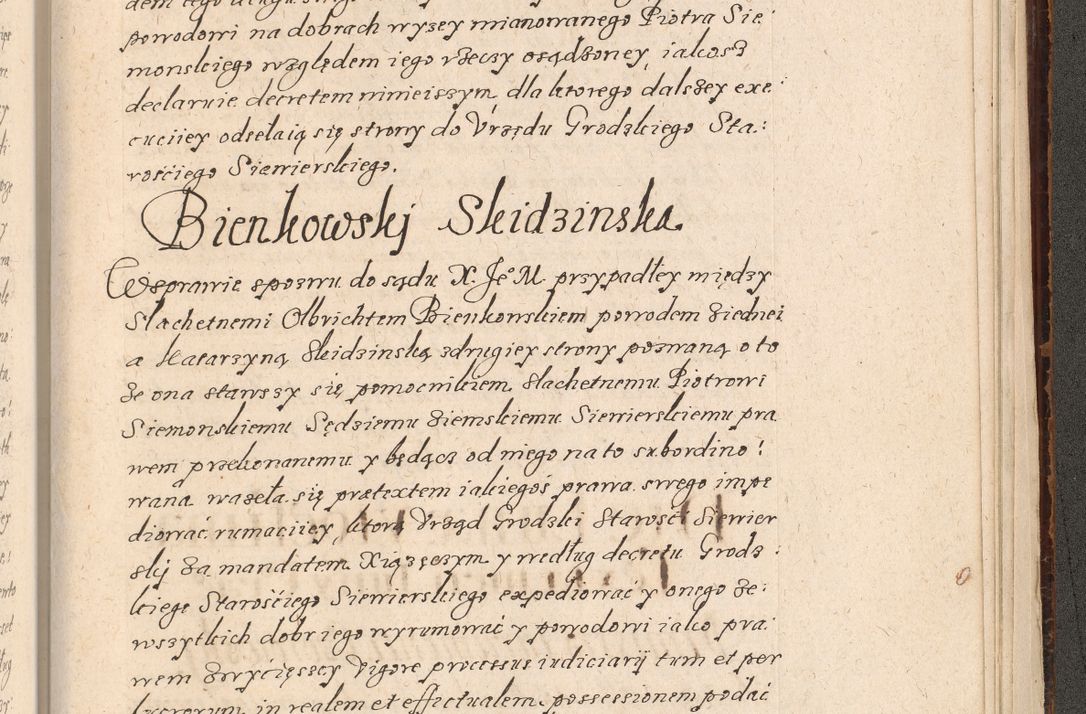 powodowi na dobrach wyzey mianowanego Piotra Sie
monskiego względem iego rzeczy osądzoney, iakosz
declaruie decretem ninieiszym dla ktorego dalszey exe
cuciiey odsełaią się strony do Vrzędu Grodzkiego Sta:
rościego Siewierskiego.
Bienkowskj Skidzinska
W sprawie spozwu do sądu X. Je° M. przypadłey między
Slachetnemi Olbrichtem Bienkowskiem powodem ziednei
a Katarzyną Skidzinską zdrugiey strony pozwaną o to
że ona stawszy się pomocnikiem slachetnemu Piotrowi
Siemonskiemu Sędziemu ziemskiemu Siewierskiemu pra
wem przekonanemu y będącz od niego na to subordino:
wana wazeła się prætextem iakiegoś prawa swego impe
diować rumaciiey, ktorą Vrząd Grodzki Starosći Siewier
skj za mandatem Xiążęczym y według decretu Grodz:
kiego Starościego Siewierskiego expediować y onego ze:
wszytkich dobr iego wyrumować y powodowi iako pra:
wem zwycięszcy vigore processus iudiciarij tum et per
lucrorum in realem et effectualem possessionem podać